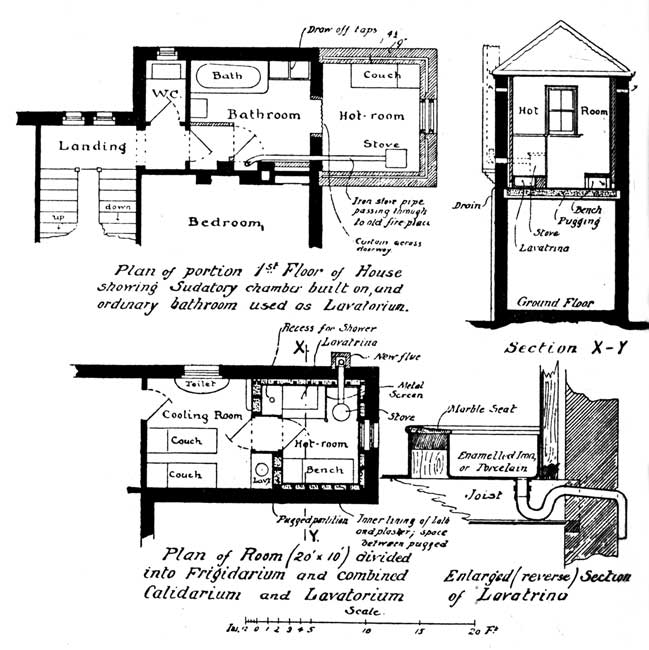 Draw off taps
4½
9"
Bath
W.C.
Couch
Bathroom
Hot-room
Landing
Stove
up
down
Bedroom
Iron stove pipe
passing through
to old fire place
Curtain across
doorway
Plan of portion 1st Floor of House
showing Sudatory chamber built on, and
ordinary bathroom used as Lavatorium.
Hot Room
Drain
Bench
Pugging
Stove
Lavatrina
Ground Floor
Section X-Y
Recess for Shower
X.
Lavatrina
New flue
Toilet
Metal
Screen
Cooling Room
Stove
Couch
Hot-room
Couch
Lavy
Bench
Pugged partition
Inner lining of lath
and plaster; space
between pugged
Y.
Plan of Room (20' x 10') divided
into Frigidarium and combined
Calidarium and Lavatorium
Marble Seat
Enamelled Iron,
or Porcelain
Joist
Enlarged (reverse) Section
of Lavatrina
Scale.
Ins. 12 0 1 2 3 4 5 10 15 20 Ft